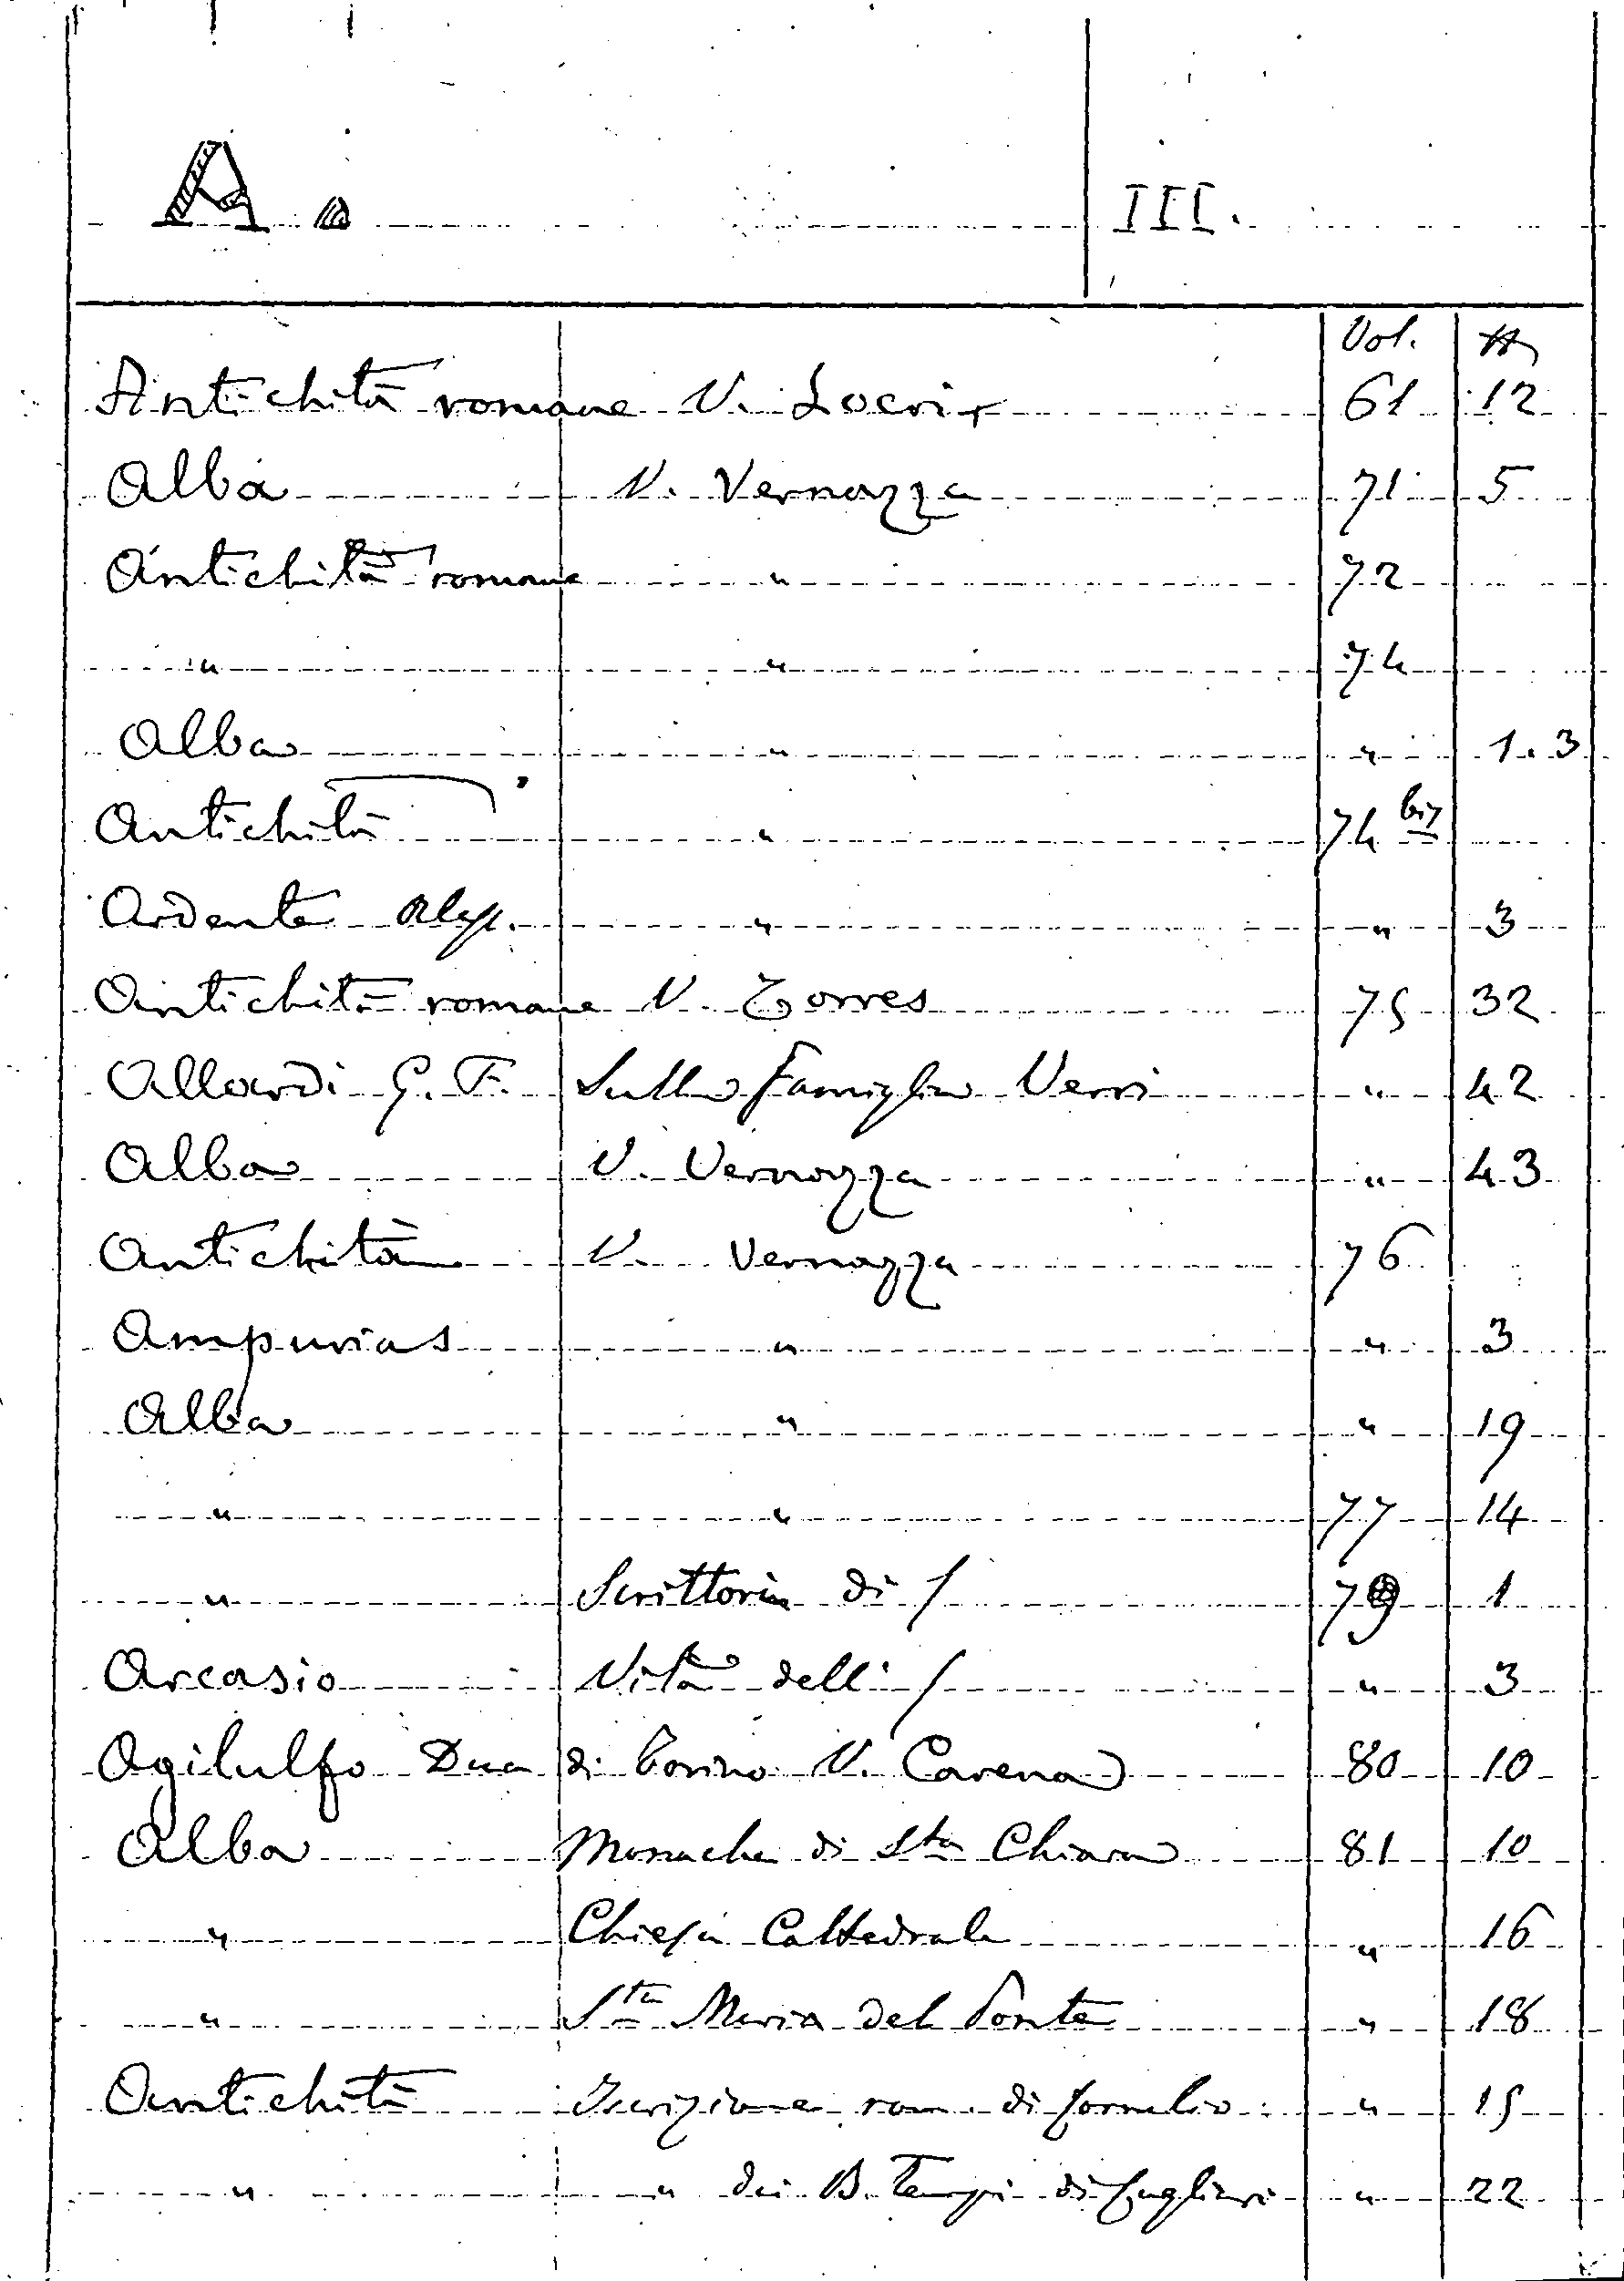 A. III.
Vol. №
Antichità romane V. Locri 61 12
Alba V. Vernazza 71 5
Antichità romane " 72
" " 74
Alba " " 1.3
Antichità " 74 bis
Ardente Aless. " " 3
Antichità romane V. Torres 75 32
Allardi G. F. Sulla famiglia Verri " 42
Alba V. Vernazza " 43
Antichità V. Vernazza 76
Ampurias " " 3
Alba " " 19
" " 77 14
" Scrittori di / 79 1
Arcasio Vita dell' / " 3
Agilulfo Duca di Torino V. Carena 80 10
Alba Monache di Sta Chiara 81 10
" Chiesa Cattedrale " 16
" Sta Maria del Ponte " 18
Antichità Iscrizione rom. di Cornelio " 15
" " dei B. Tempi di Cagliari " 22